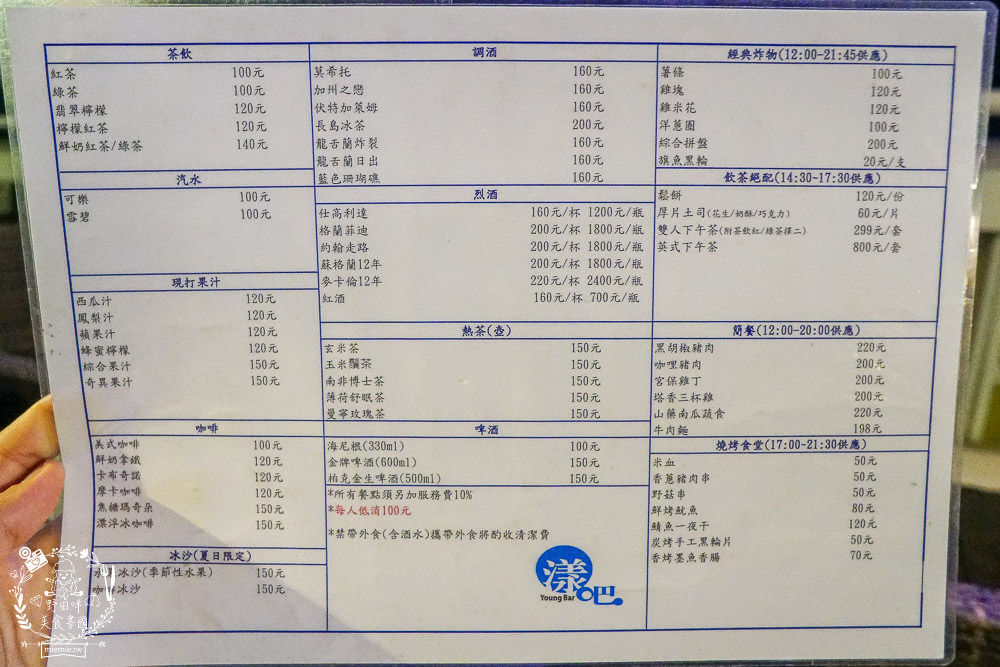 茶飲
紅茶 100元
綠茶 100元
翡翠檸檬 120元
檸檬紅茶 120元
鮮奶紅茶/綠茶 140元
汽水
可樂 100元
雪碧 100元
現打果汁
西瓜汁 120元
鳳梨汁 120元
蘋果汁 120元
蜂蜜檸檬 120元
綜合果汁 150元
奇異果汁 150元
咖啡
美式咖啡 100元
鮮奶拿鐵 120元
卡布奇諾 120元
摩卡咖啡 120元
焦糖瑪奇朵 150元
漂浮冰咖啡 150元
冰沙(夏日限定)
冰沙(季節性水果) 150元
冰沙 150元
調酒
莫希托 160元
加州之戀 160元
伏特加萊姆 160元
長島冰茶 200元
龍舌蘭炸裂 160元
龍舌蘭日出 160元
藍色珊瑚礁 160元
烈酒
仕高利達 160元/杯 1200元/瓶
格蘭菲迪 200元/杯 1800元/瓶
約翰走路 200元/杯 1800元/瓶
蘇格蘭12年 200元/杯 1800元/瓶
麥卡倫12年 220元/杯 2400元/瓶
紅酒 160元/杯 700元/瓶
熱茶(壺)
玄米茶 150元
玉米鬚茶 150元
南非博士茶 150元
薄荷舒眠茶 150元
曼寧玫瑰茶 150元
啤酒
海尼根(330ml) 100元
金牌啤酒(600ml) 150元
柏克金生啤酒(500ml) 150元
*所有餐點須另加服務費10%
*每人低消100元
*禁帶外食(含酒水)攜帶外食將酌收清潔費
漾吧
Young Bar
經典炸物(12:00-21:45供應)
薯條 100元
雞塊 120元
雞米花 120元
洋蔥圈 100元
綜合拼盤 200元
旗魚黑輪 20元/支
飲茶絕配(14:30-17:30供應)
鬆餅 120元/份
厚片土司(花生/奶酥/巧克力) 60元/片
雙人下午茶(附茶飲紅/綠茶擇二) 299元/套
英式下午茶 800元/套
簡餐(12:00-20:00供應)
黑胡椒豬肉 220元
咖哩豬肉 200元
宮保雞丁 200元
塔香三杯雞 200元
山藥南瓜蔬食 220元
牛肉麵 198元
燒烤食堂(17:00-21:30供應)
米血 50元
香蔥豬肉串 50元
野菇串 50元
鮮烤魷魚 80元
鯖魚一夜干 120元
炭烤手工黑輪片 50元
香烤墨魚香腸 70元
野田咩
美食樂園
miemie.tw